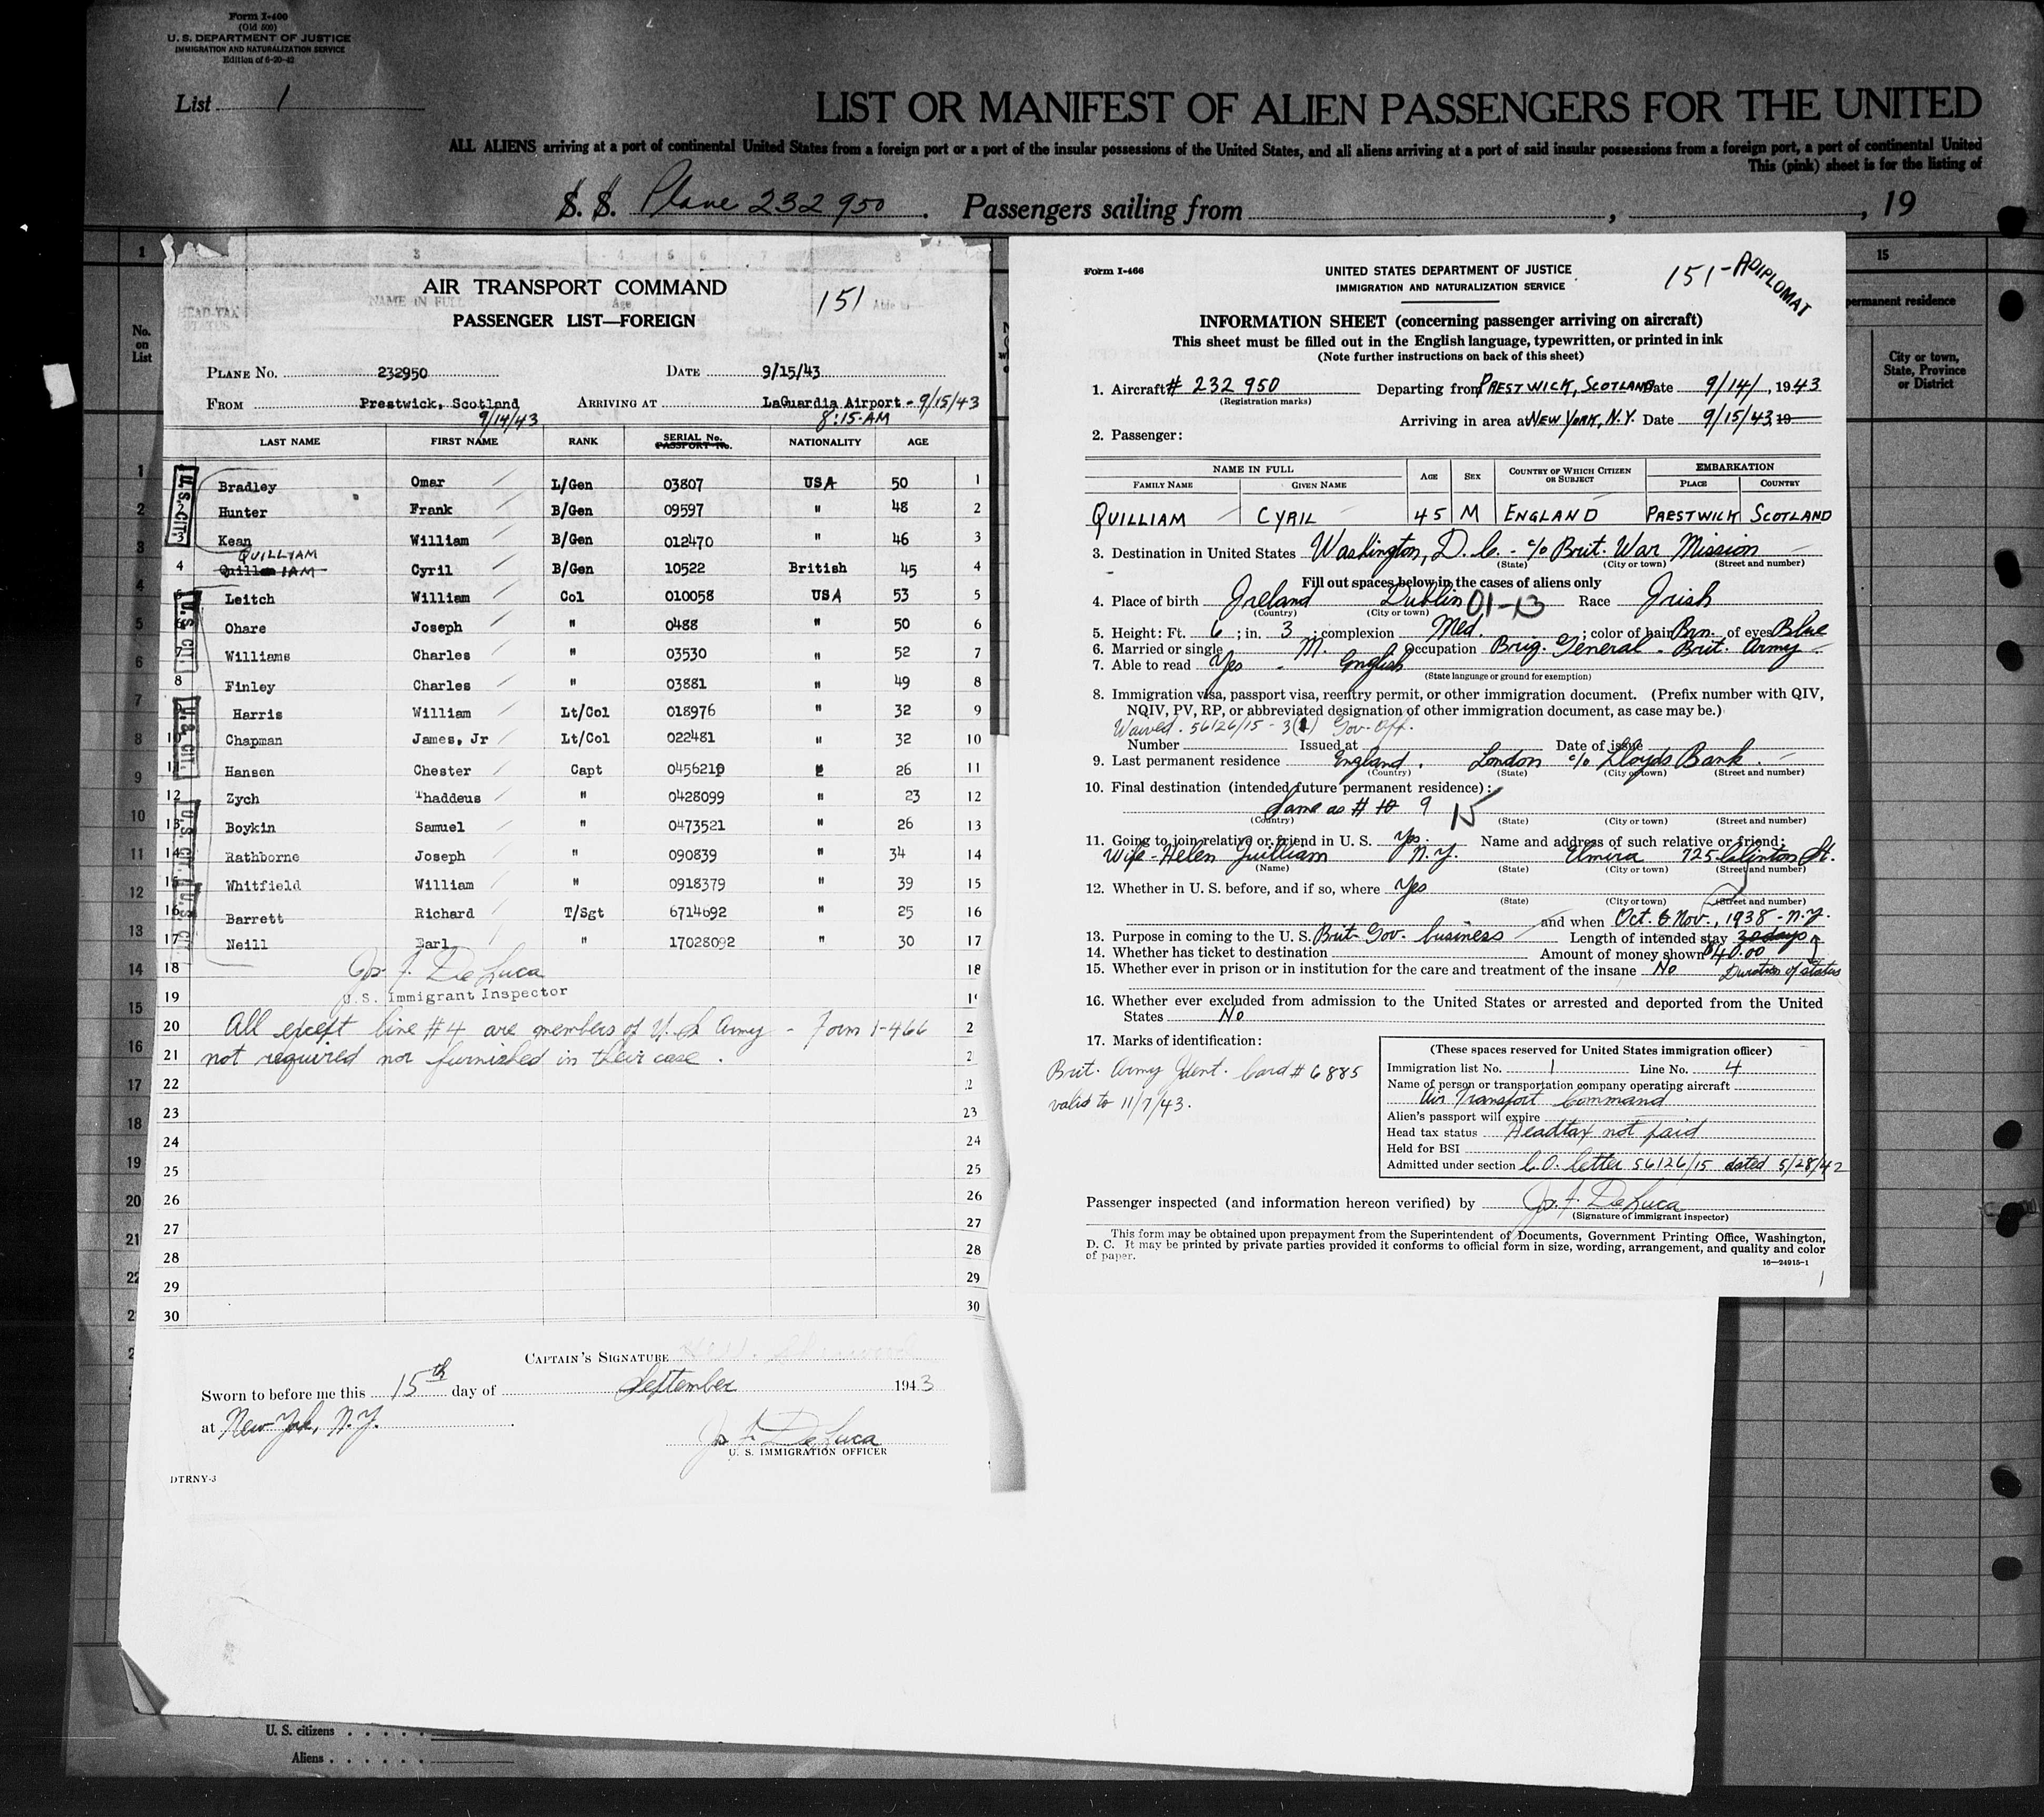 Form I-400
(Old 500)
U. S. DEPARTMENT OF JUSTICE
IMMIGRATION AND NATURALIZATION SERVICE
Edition of 6-20-42
List 1
LIST OR MANIFEST OF ALIEN PASSENGERS FOR THE UNITED
ALL ALIENS arriving at a port of continental United States from a foreign port or a port of the insular possessions of the United States, and all aliens arriving at a port of said insular possessions from a foreign port, a port of continental United
This (pink) sheet is for the listing of
S. S. Plane 232 950. Passengers sailing from , , 19
1
No. on List
AIR TRANSPORT COMMAND
PASSENGER LIST—FOREIGN
151
PLANE NO. 232950 DATE 9/15/43
FROM Prestwick, Scotland ARRIVING AT LaGuardia Airport - 9/15/43
9/14/43 8:15 AM
LAST NAME FIRST NAME RANK SERIAL No. PASSPORT No. NATIONALITY AGE
1 Bradley Omar L/Gen 03807 USA 50 1
2 Hunter Frank B/Gen 09597 " 48 2
3 Kean William B/Gen 012470 " 46 3
QUILLIAM
4 Cyril B/Gen 10522 British 45 4
5 Leitch William Col 010058 USA 53 5
6 Ohare Joseph " 0488 " 50 6
7 Williams Charles " 03530 " 52 7
8 Finley Charles " 03881 " 49 8
9 Harris William Lt/Col 018976 " 32 9
10 Chapman James, Jr Lt/Col 022481 " 32 10
11 Hansen Chester Capt 0456210 " 26 11
12 Zych Thaddeus " 0428099 " 23 12
13 Boykin Samuel " 0473521 " 26 13
14 Rathborne Joseph " 090839 " 34 14
15 Whitfield William " 0918379 " 39 15
16 Barrett Richard T/Sgt 6714692 " 25 16
17 Neill Earl " 17028092 " 30 17
18 Jos. F. DeLuca 18
19 U.S. Immigrant Inspector
20 All except line #4 are members of U.S. Army - Form I-466
21 not required nor furnished in their case.
22
23 23
24 24
25 25
26 26
27 27
28 28
29 29
30 30
CAPTAIN'S SIGNATURE
Sworn to before me this 15th day of September 1943
at New York, N.Y.
Jos. F. DeLuca
U. S. IMMIGRATION OFFICER
DTRNY-3
U.S. CIT.
U.S. CIT.
U.S. CIT.
U.S. CIT.
Form I-466
UNITED STATES DEPARTMENT OF JUSTICE
IMMIGRATION AND NATURALIZATION SERVICE
151-A DIPLOMAT
INFORMATION SHEET (concerning passenger arriving on aircraft)
This sheet must be filled out in the English language, typewritten, or printed in ink
(Note further instructions on back of this sheet)
1. Aircraft # 232 950 Departing from PRESTWICK, SCOTLAND Date 9/14/, 1943
(Registration marks)
Arriving in area at NEW YORK, N.Y. Date 9/15/43 19
2. Passenger:
NAME IN FULL AGE SEX COUNTRY OF WHICH CITIZEN OR SUBJECT EMBARKATION
FAMILY NAME GIVEN NAME PLACE COUNTRY
QUILLIAM CYRIL 45 M ENGLAND PRESTWICK SCOTLAND
3. Destination in United States Washington, D.C. - c/o Brit. War Mission
(State) (City or town) (Street and number)
Fill out spaces below in the cases of aliens only
4. Place of birth Ireland Dublin 01-13 Race Irish
(Country) (City or town)
5. Height: Ft. 6; in. 3; complexion Med.; color of hair Brn. of eyes Blue
6. Married or single M. Occupation Brig. General - Brit. Army
7. Able to read Yes - English
(State language or ground for exemption)
8. Immigration visa, passport visa, reentry permit, or other immigration document. (Prefix number with QIV,
NQIV, PV, RP, or abbreviated designation of other immigration document, as case may be.)
Waived. 56126/15 - 3(1) Gov. Off.
Number Issued at Date of issue
9. Last permanent residence England. London c/o Lloyds Bank.
(Country) (State) (City or town) (Street and number)
10. Final destination (intended future permanent residence):
Same as # 10 9 15
(Country) (State) (City or town) (Street and number)
11. Going to join relative or friend in U. S. Yes. Name and address of such relative or friend:
Wife - Helen Quilliam N.Y. Elmira 725 Clinton St.
(Name) (State) (City or town) (Street and number)
12. Whether in U. S. before, and if so, where Yes
(State) (City or town) (Street and number)
and when Oct. & Nov., 1938 - N.Y.
13. Purpose in coming to the U. S. Brit. Gov. business Length of intended stay 30 days
14. Whether has ticket to destination Amount of money shown $40.00
15. Whether ever in prison or in institution for the care and treatment of the insane No Duration of status
16. Whether ever excluded from admission to the United States or arrested and deported from the United
States No
17. Marks of identification:
Brit. Army Ident. Card # 6885
valid to 11/7/43.
(These spaces reserved for United States immigration officer)
Immigration list No. 1 Line No. 4
Name of person or transportation company operating aircraft
Air Transport Command
Alien's passport will expire
Head tax status Headtax not paid
Held for BSI
Admitted under section C.O. letter 56126/15 dated 5/28/42
Passenger inspected (and information hereon verified) by Jos. F. DeLuca
(Signature of immigrant inspector)
This form may be obtained upon prepayment from the Superintendent of Documents, Government Printing Office, Washington,
D. C. It may be printed by private parties provided it conforms to official form in size, wording, arrangement, and quality and color
of paper.
16—24915-1
1
15
permanent residence
City or town, State, Province or District
U. S. citizens
Aliens